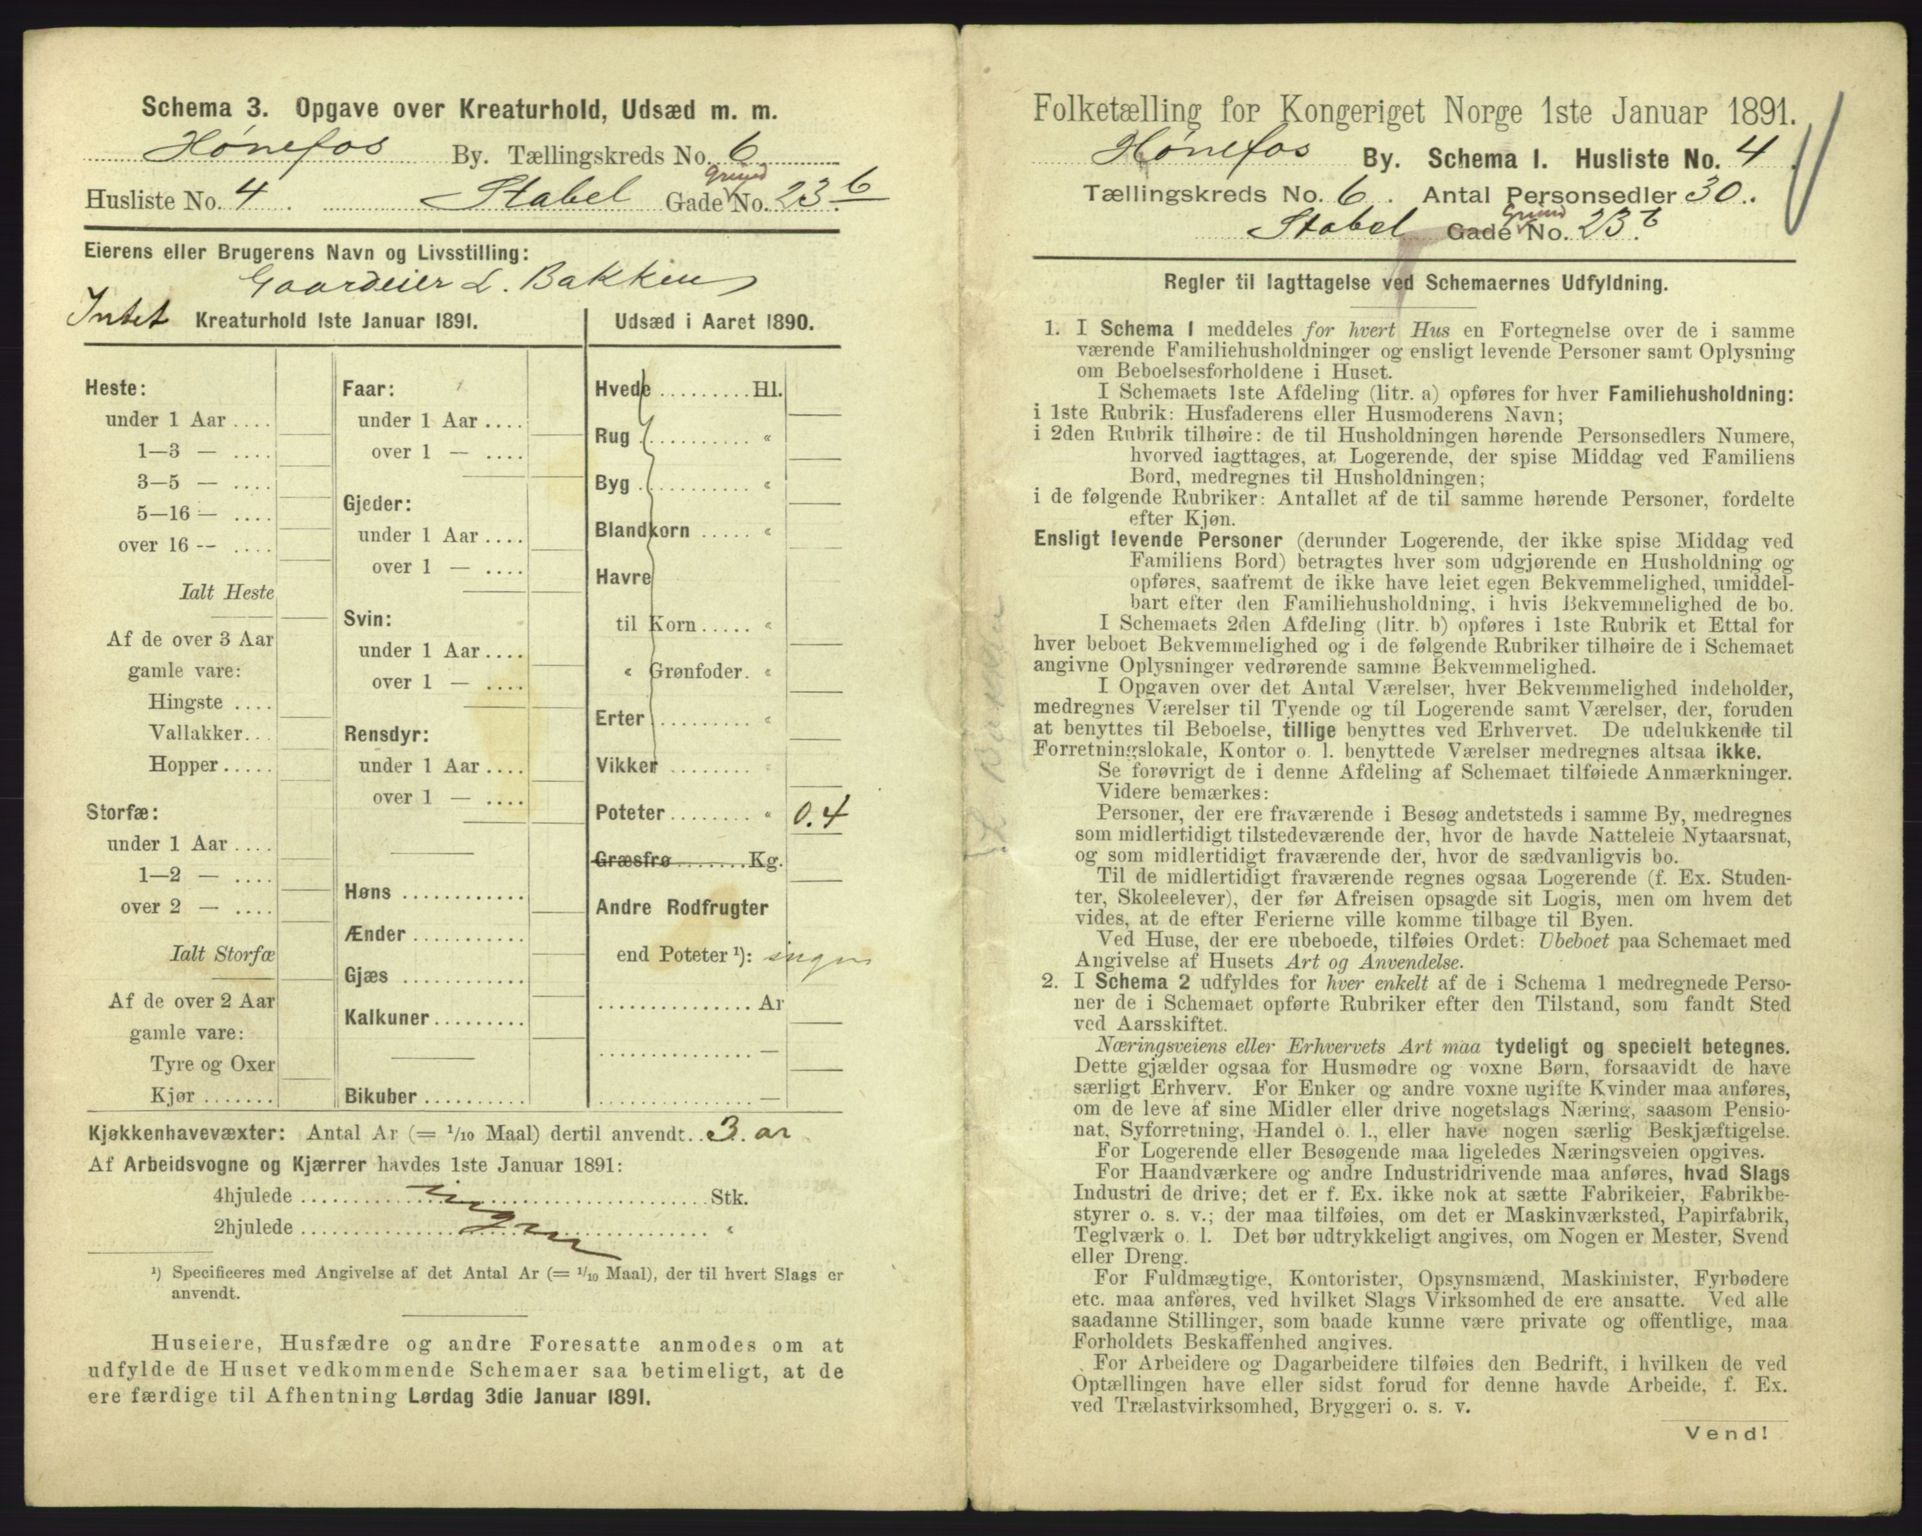 Schema 3. Opgave over Kreaturhold, Udsæd m. m.
Hønefos By. Tællingskreds No. 6
Husliste No. 4 Stabel Gade Grund No. 23 b
Eierens eller Brugerens Navn og Livsstilling:
Gaardeier L. Bakken
Intet Kreaturhold 1ste Januar 1891.
Heste:
under 1 Aar ....
1—3 — ....
3—5 — ....
5—16 — ....
over 16 -- ....
Ialt Heste
Af de over 3 Aar
gamle vare:
Hingste ....
Vallakker...
Hopper.....
Storfæ:
under 1 Aar ....
1—2 — ....
over 2 — ....
Ialt Storfæ
Af de over 2 Aar
gamle vare:
Tyre og Oxer
Kjør .......
Faar:
under 1 Aar ....
over 1 — ....
Gjeder:
under 1 Aar ....
over 1 — ....
Svin:
under 1 Aar ....
over 1 — ....
Rensdyr:
under 1 Aar ....
over 1 — ....
Høns ............
Ænder ...........
Gjæs ............
Kalkuner.........
Bikuber..........
Udsæd i Aaret 1890.
Hvede ......... Hl.
Rug .......... "
Byg .......... "
Blandkorn ..... "
Havre
til Korn..... "
" Grønfoder. "
Erter ........ "
Vikker ........ "
Poteter ........ " 0.4
Græsfrø....... Kg.
Andre Rodfrugter
end Poteter ¹): ingen
............... Ar
............... —
............... —
Kjøkkenhavevæxter: Antal Ar (= 1/10 Maal) dertil anvendt.. 3. ar
Af Arbeidsvogne og Kjærrer havdes 1ste Januar 1891:
4hjulede ........ Stk.
ingen
2hjulede ........ "
¹) Specificeres med Angivelse af det Antal Ar (= 1/10 Maal), der til hvert Slags er
anvendt.
Huseiere, Husfædre og andre Foresatte anmodes om at
udfylde de Huset vedkommende Schemaer saa betimeligt, at de
ere færdige til Afhentning Lørdag 3die Januar 1891.
Folketælling for Kongeriget Norge 1ste Januar 1891.
Hønefos By. Schema 1. Husliste No. 4
Tællingskreds No. 6. Antal Personsedler 30.
Stabel Gade Grund No. 23 b
Regler til Iagttagelse ved Schemaernes Udfyldning.
1. I Schema 1 meddeles for hvert Hus en Fortegnelse over de i samme
værende Familiehusholdninger og ensligt levende Personer samt Oplysning
om Beboelsesforholdene i Huset.
I Schemaets 1ste Afdeling (litr. a) opføres for hver Familiehusholdning:
i 1ste Rubrik: Husfaderens eller Husmoderens Navn;
i 2den Rubrik tilhøire: de til Husholdningen hørende Personsedlers Numere,
hvorved iagttages, at Logerende, der spise Middag ved Familiens
Bord, medregnes til Husholdningen;
i de følgende Rubriker: Antallet af de til samme hørende Personer, fordelte
efter Kjøn.
Ensligt levende Personer (derunder Logerende, der ikke spise Middag ved
Familiens Bord) betragtes hver som udgjørende en Husholdning og
opføres, saafremt de ikke have leiet egen Bekvemmelighed, umiddel-
bart efter den Familiehusholdning, i hvis Bekvemmelighed de bo.
I Schemaets 2den Afdeling (litr. b) opføres i 1ste Rubrik et Ettal for
hver beboet Bekvemmelighed og i de følgende Rubriker tilhøire de i Schemaet
angivne Oplysninger vedrørende samme Bekvemmelighed.
I Opgaven over det Antal Værelser, hver Bekvemmelighed indeholder,
medregnes Værelser til Tyende og til Logerende samt Værelser, der, foruden
at benyttes til Beboelse, tillige benyttes ved Erhvervet. De udelukkende til
Forretningslokale, Kontor o. l. benyttede Værelser medregnes altsaa ikke.
Se forøvrigt de i denne Afdeling af Schemaet tilføiede Anmærkninger.
Videre bemærkes:
Personer, der ere fraværende i Besøg andetsteds i samme By, medregnes
som midlertidigt tilstedeværende der, hvor de havde Natteleie Nytaarsnat,
og som midlertidigt fraværende der, hvor de sædvanligvis bo.
Til de midlertidigt fraværende regnes ogsaa Logerende (f. Ex. Studen-
ter, Skoleelever), der før Afreisen opsagde sit Logis, men om hvem det
vides, at de efter Ferierne ville komme tilbage til Byen.
Ved Huse, der ere ubeboede, tilføies Ordet: Ubeboet paa Schemaet med
Angivelse af Husets Art og Anvendelse.
2. I Schema 2 udfyldes for hver enkelt af de i Schema 1 medregnede Perso-
ner de i Schemaet opførte Rubriker efter den Tilstand, som fandt Sted
ved Aarsskiftet.
Næringsveiens eller Erhvervets Art maa tydeligt og specielt betegnes.
Dette gjælder ogsaa for Husmødre og voxne Børn, forsaavidt de have
særligt Erhverv. For Enker og andre voxne ugifte Kvinder maa anføres,
om de leve af sine Midler eller drive nogetslags Næring, saasom Pensio-
nat, Syforretning, Handel o. l., eller have nogen særlig Beskjæftigelse.
For Logerende eller Besøgende maa ligeledes Næringsveien opgives.
For Haandværkere og andre Industridrivende maa anføres, hvad Slags
Industri de drive; det er f. Ex. ikke nok at sætte Fabrikeier, Fabrikbe-
styrer o. s. v.; der maa tilføies, om det er Maskinværksted, Papirfabrik,
Teglværk o. l. Det bør udtrykkeligt angives, om Nogen er Mester, Svend
eller Dreng.
For Fuldmægtige, Kontorister, Opsynsmænd, Maskinister, Fyrbødere
etc. maa anføres, ved hvilket Slags Virksomhed de ere ansatte. Ved alle
saadanne Stillinger, som baade kunne være private og offentlige, maa
Forholdets Beskaffenhed angives.
For Arbeidere og Dagarbeidere tilføies den Bedrift, i hvilken de ved
Optællingen have eller sidst forud for denne havde Arbeide, f. Ex.
ved Trælastvirksomhed, Bryggeri o. s. v.
Vend!
L. Bakken